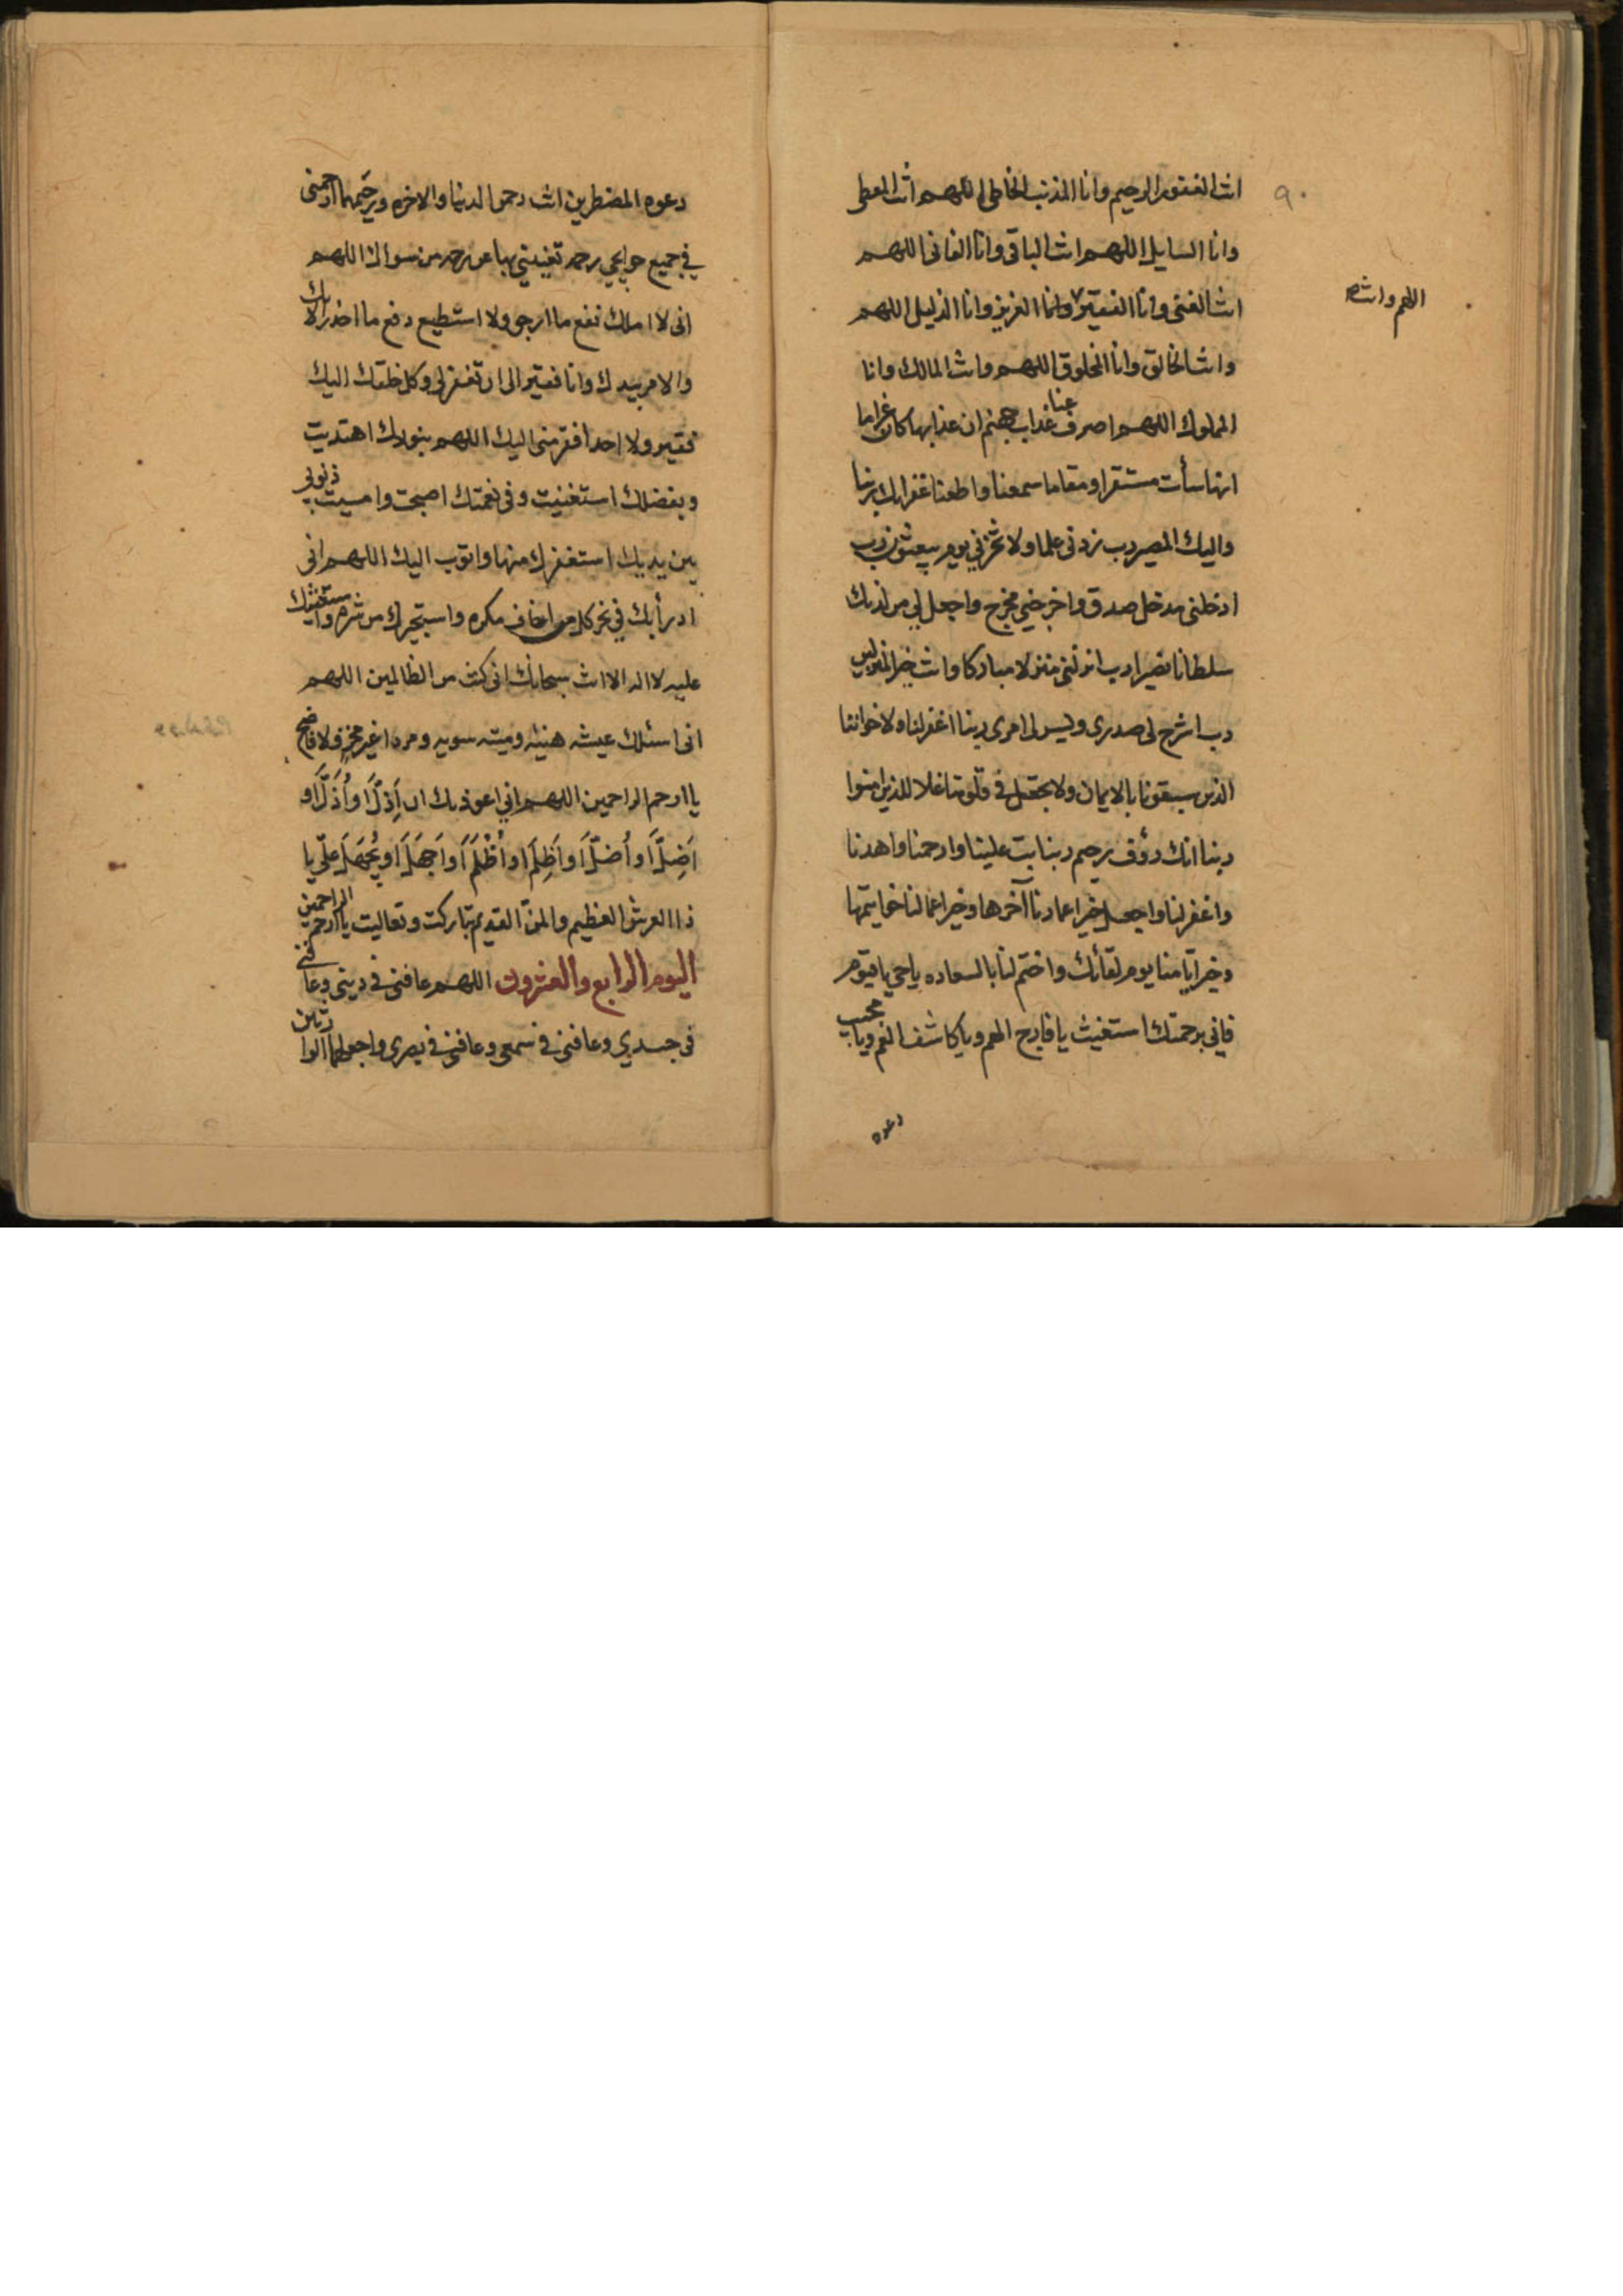 ٩٠
انت الغفور الرحيم وانا المذنب الخاطى اللهم انت المعطى
وانا السايل اللهم انت الباقى وانا الفانى اللهم
انت الغنى وانا الفقير وانا العزيز وانا الذليل اللهم
اللهم وانت
وانت الخالق وانا المخلوق اللهم وانت المالك وانا
المملوك اللهم اصرف عنا عذاب جهنم ان عذابها كان غراما
انها سأت مستقرا ومقاما سمعنا واطعنا غفرانك ربنا
واليك المصير رب زدنى علما ولا تخزني يوم يبعثون رب
ادخلنى مدخل صدق واخرجني مخرج واجعل لي من لدنك
سلطانا نصيرا رب انزلنى منزلا مباركا وانت خير المنزلين
رب اشرح لى صدرى ويسر لى امرى ربنا اغفر لنا ولاخواننا
الذين سبقونا بالايمان ولا تجعل فى قلوبنا غلا للذين امنوا
ربنا انك رؤف رحيم ربنا تب علينا وارحمنا واهدنا
واغفر لنا واجعل خير اعمارنا آخرها وخير اعمالنا خواتيمها
وخير ايامنا يوم لقائك واختم لنا بالسعاده ياحي ياقيوم
فاني برحمتك استغيث يا فارج الهم ويا كاشف الغم ويا مجيب
دعوه
دعوه المضطرين انت رحمن الدنيا والاخره ورحيمهما ارحمنى
في جميع حوايجي رحمه تغنيني بها عن رحمه من سواك اللهم
انى لا املك نفع ما ارجو ولا استطيع دفع ما احذر الا بك
والامر بيدك وانا فقير الى ان تغفر لي وكل خلقك اليك
فقير ولا احد افقر منى اليك اللهم بنورك اهتديت
وبفضلك استغنيت وفى نعمتك اصبحت وامسيت ذنوبى
بين يديك استغفرك منها واتوب اليك اللهم انى
ادرأبك في نحر كل من اخاف مكره واستجيرك من شره واستعينك
عليه لا اله الا انت سبحانك انى كنت من الظالمين اللهم
انى اسئلك عيشه هنيئه وميته سويه ومردا غير مخز ولا فاضح
يا ارحم الراحمين اللهم اني اعوذ بك ان اَذِلَّ او اُذَلَّ او
اَضِلَّ او اُضَلَّ او اَظلِمَ او اُظْلَمَ او اَجهَلَ او يُجهَلَ علَيّ يا
ذا العرش العظيم والمن القديم تباركت وتعاليت يا ارحم الراحمين
اليوم الرابع والعشرون اللهم عافنى فى دينى وعافنى
فى جسدي وعافنى فى سمعى وعافنى فى بصرى واجعلهما الوارثين